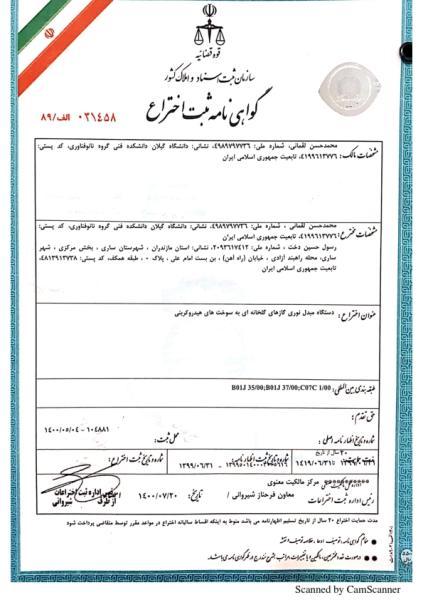 قوه قضائیه
سازمان ثبت اسناد و املاک کشور
گواهی نامه ثبت اختراع
۰۳۱۴۵۸ الف/۸۹
مشخصات مالک:
محمدحسن لقمانی، شماره ملی: ۴۹۸۹۷۹۷۷۳۶، نشانی: دانشگاه گیلان دانشکده فنی گروه نانوفناوری، کد پستی:
۴۱۹۹۶۱۳۷۷۶، تابعیت جمهوری اسلامی ایران
مشخصات مخترع:
محمدحسن لقمانی، شماره ملی: ۴۹۸۹۷۹۷۷۳۶، نشانی: دانشگاه گیلان دانشکده فنی گروه نانوفناوری، کد پستی:
۴۱۹۹۶۱۳۷۷۶، تابعیت جمهوری اسلامی ایران
رسول حسین دخت، شماره ملی: ۲۰۹۳۶۱۷۴۱۲، نشانی: استان مازندران، شهرستان ساری، بخش مرکزی، شهر
ساری، محله راهبند آزادی، خیابان (راه آهن)، بن بست امام علی، پلاک ۰، طبقه همکف، کد پستی: ۴۸۱۳۹۱۳۷۳۸،
تابعیت جمهوری اسلامی ایران
عنوان اختراع: دستگاه مبدل نوری گازهای گلخانه ای به سوخت های هیدروکربنی
طبقه بندی بین المللی: B01J 35/00;B01J 37/00;C07C 1/00
حق تقدم:
شماره و تاریخ اظهارنامه اصلی:
محل ثبت:
۱۰۴۸۸۱ - ۱۴۰۰/۰۵/۰۴
شماره و تاریخ ثبت اظهارنامه:
شماره و تاریخ ثبت اختراع:
۲۰ سال از تاریخ
تا ۱۴۱۹/۰۶/۳۱
۱۳۹۹/۰۶/۳۱
مرکز مالکیت معنوی
رئیس اداره ثبت اختراعات
معاون فرحناز شیروانی
تاریخ: ۱۴۰۰/۰۷/۲۰
اداره ثبت اختراعات
از طرف
شیروانی
مدت حمایت اختراع ۲۰ سال از تاریخ تسلیم اظهارنامه می باشد منوط به اینکه اقساط سالیانه اختراع در مواعد مقرر توسط متقاضی پرداخت شود
Scanned by CamScanner